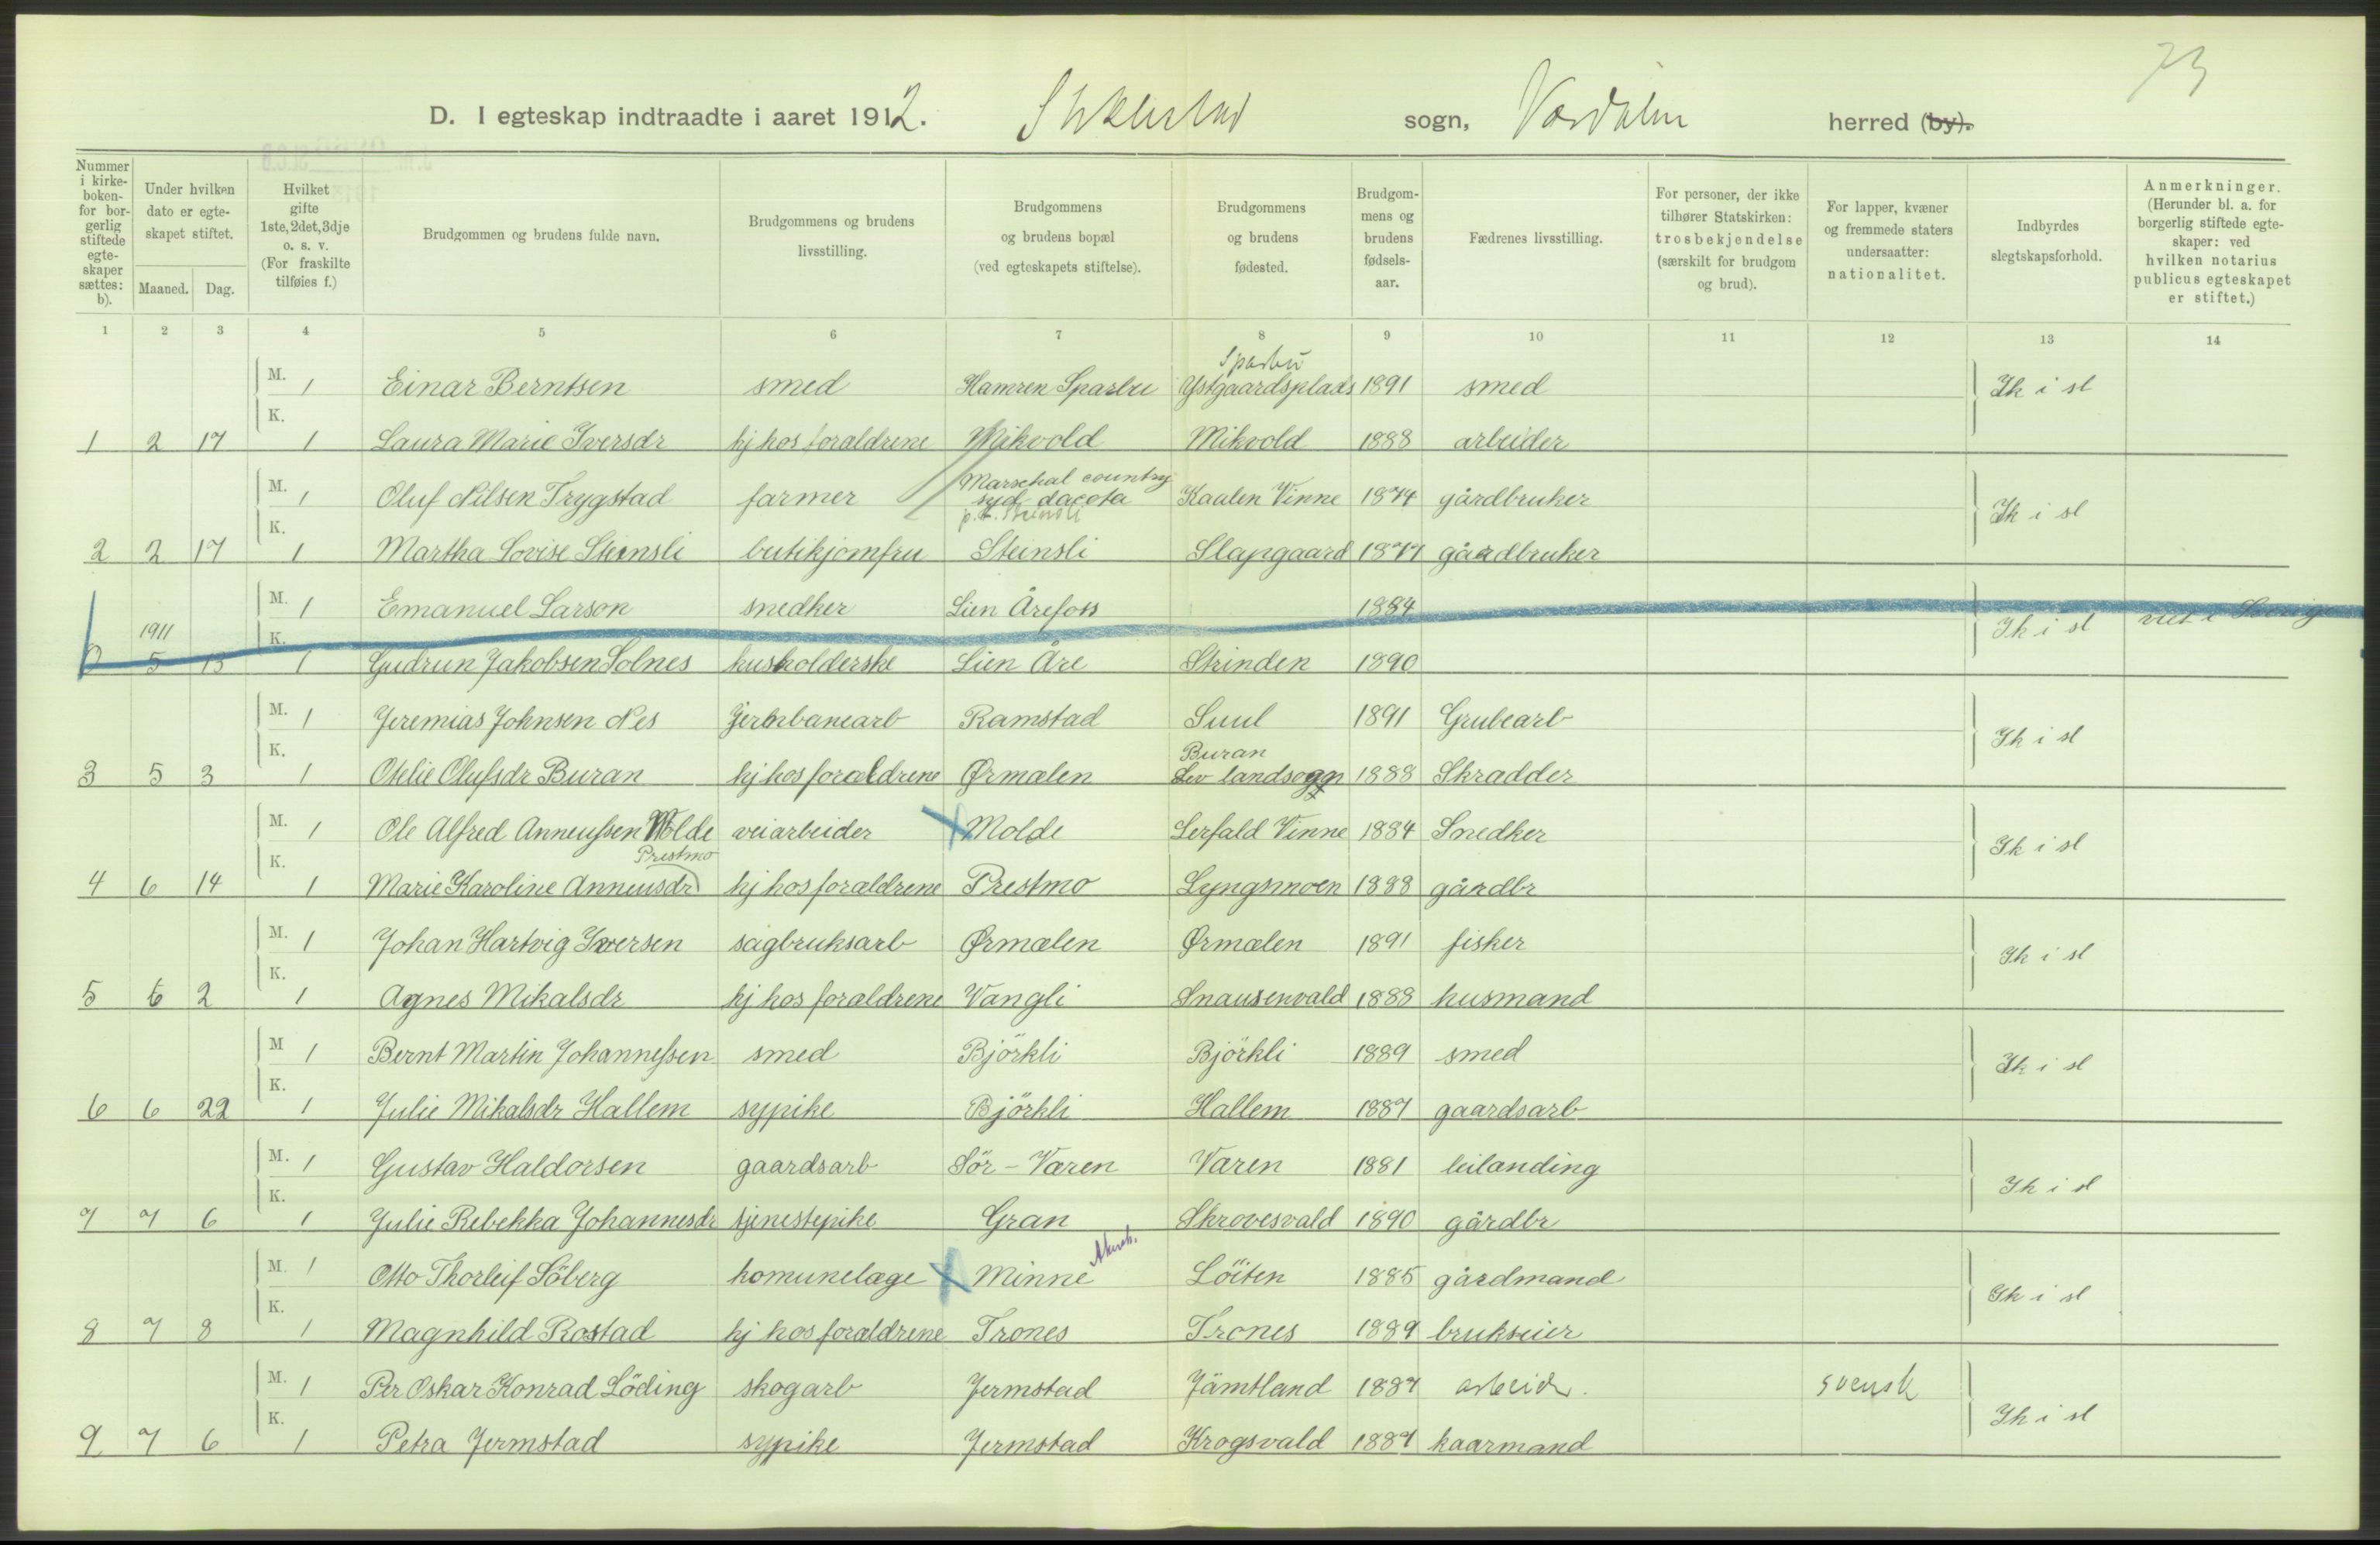 73
D. I egteskap indtraadte i aaret 1912. Stiklestad sogn, Værdalen herred (by).
Nummer i kirkeboken- for borgerlig stiftede egteskaper sættes: b).
Under hvilken dato er egteskapet stiftet.
Maaned. Dag.
Hvilket gifte 1ste, 2det, 3dje o. s. v. (For fraskilte tilføies f.)
Brudgommen og brudens fulde navn.
Brudgommens og brudens livsstilling.
Brudgommens og brudens bopæl (ved egteskapets stiftelse).
Brudgommens og brudens fødested.
Brudgommens og brudens fødselsaar.
Fædrenes livsstilling.
For personer, der ikke tilhører Statskirken: trosbekjendelse (særskilt for brudgom og brud).
For lapper, kvæner og fremmede staters undersaatter: nationalitet.
Indbyrdes slegtskapsforhold.
Anmerkninger. (Herunder bl. a. for borgerlig stiftede egteskaper: ved hvilken notarius publicus egteskapet er stiftet.)
1 2 3 4 5 6 7 8 9 10 11 12 13 14
M. 1 Einar Berntsen smed Hamren Sparbu Sparbu Ystgaardsplads 1891 smed Ik i sl
1 2 17 K. 1 Laura Marie Iversdr hj hos forældrene Mikvold Mikvold 1888 arbeider
M. 1 Oluf Nilsen Trygstad farmer Marschal country syd dacota p.t. Steinsli Kaalen Vinne 1874 gårdbruker Ik i sl
2 2 17 K. 1 Martha Lovise Steinsli butikjomfru Steinsli Slapgaard 1877 gårdbruker
M. 1 Emanuel Larson snedker Lien Årefoss 1884 Ik i sl viet i Sverige
1911 5 13 K. 1 Gudrun Jakobsen Solnes husholderske Lien Åre Strinden 1890
M. 1 Jeremias Johnsen Nes jernbanearb Ramstad Suul 1891 Grubearb Ik i sl
3 5 3 K. 1 Otelie Olufsdr Buran hj hos forældrene Ørmælen Buran Lev landsogn 1888 Skrædder
M. 1 Ole Alfred Anneussen Molde veiarbeider Molde Lerfald Vinne 1884 Snedker Ik i sl
4 6 14 K. 1 Marie Karoline Anneusdr Prestmo hj hos forældrene Prestmo Lyngsmoen 1888 gårdbr
M. 1 Johan Hartvig Iversen sagbruksarb Ørmælen Ørmælen 1891 fisker Ik i sl
5 6 2 K. 1 Agnes Mikalsdr hj hos forældrene Vangli Snausenvald 1888 husmand
M 1 Bernt Martin Johannessen smed Björkli Björkli 1889 smed Ik i sl
6 6 22 K. 1 Julie Mikalsdr Hallem sypike Björkli Hallem 1887 gaardsarb
M. 1 Gustav Haldorsen gaardsarb Sör-Væren Væren 1881 leilænding Ik i sl
7 7 6 K. 1 Julie Rebekka Johannesdr tjenestepike Gran Skrovesvald 1890 gårdbr
M. 1 Otto Thorleif Söberg komunelæge Minne Akersh. Löiten 1885 gårdmand Ik i sl
8 7 8 K. 1 Magnhild Rostad hj hos forældrene Trones Trones 1889 brukseier
M. 1 Per Oskar Konrad Löding skogarb Jermstad Jämtland 1887 arbeider. svensk Ik i sl
9 7 6 K. 1 Petra Jermstad sypike Jermstad Krogsvald 1887 kaarmand